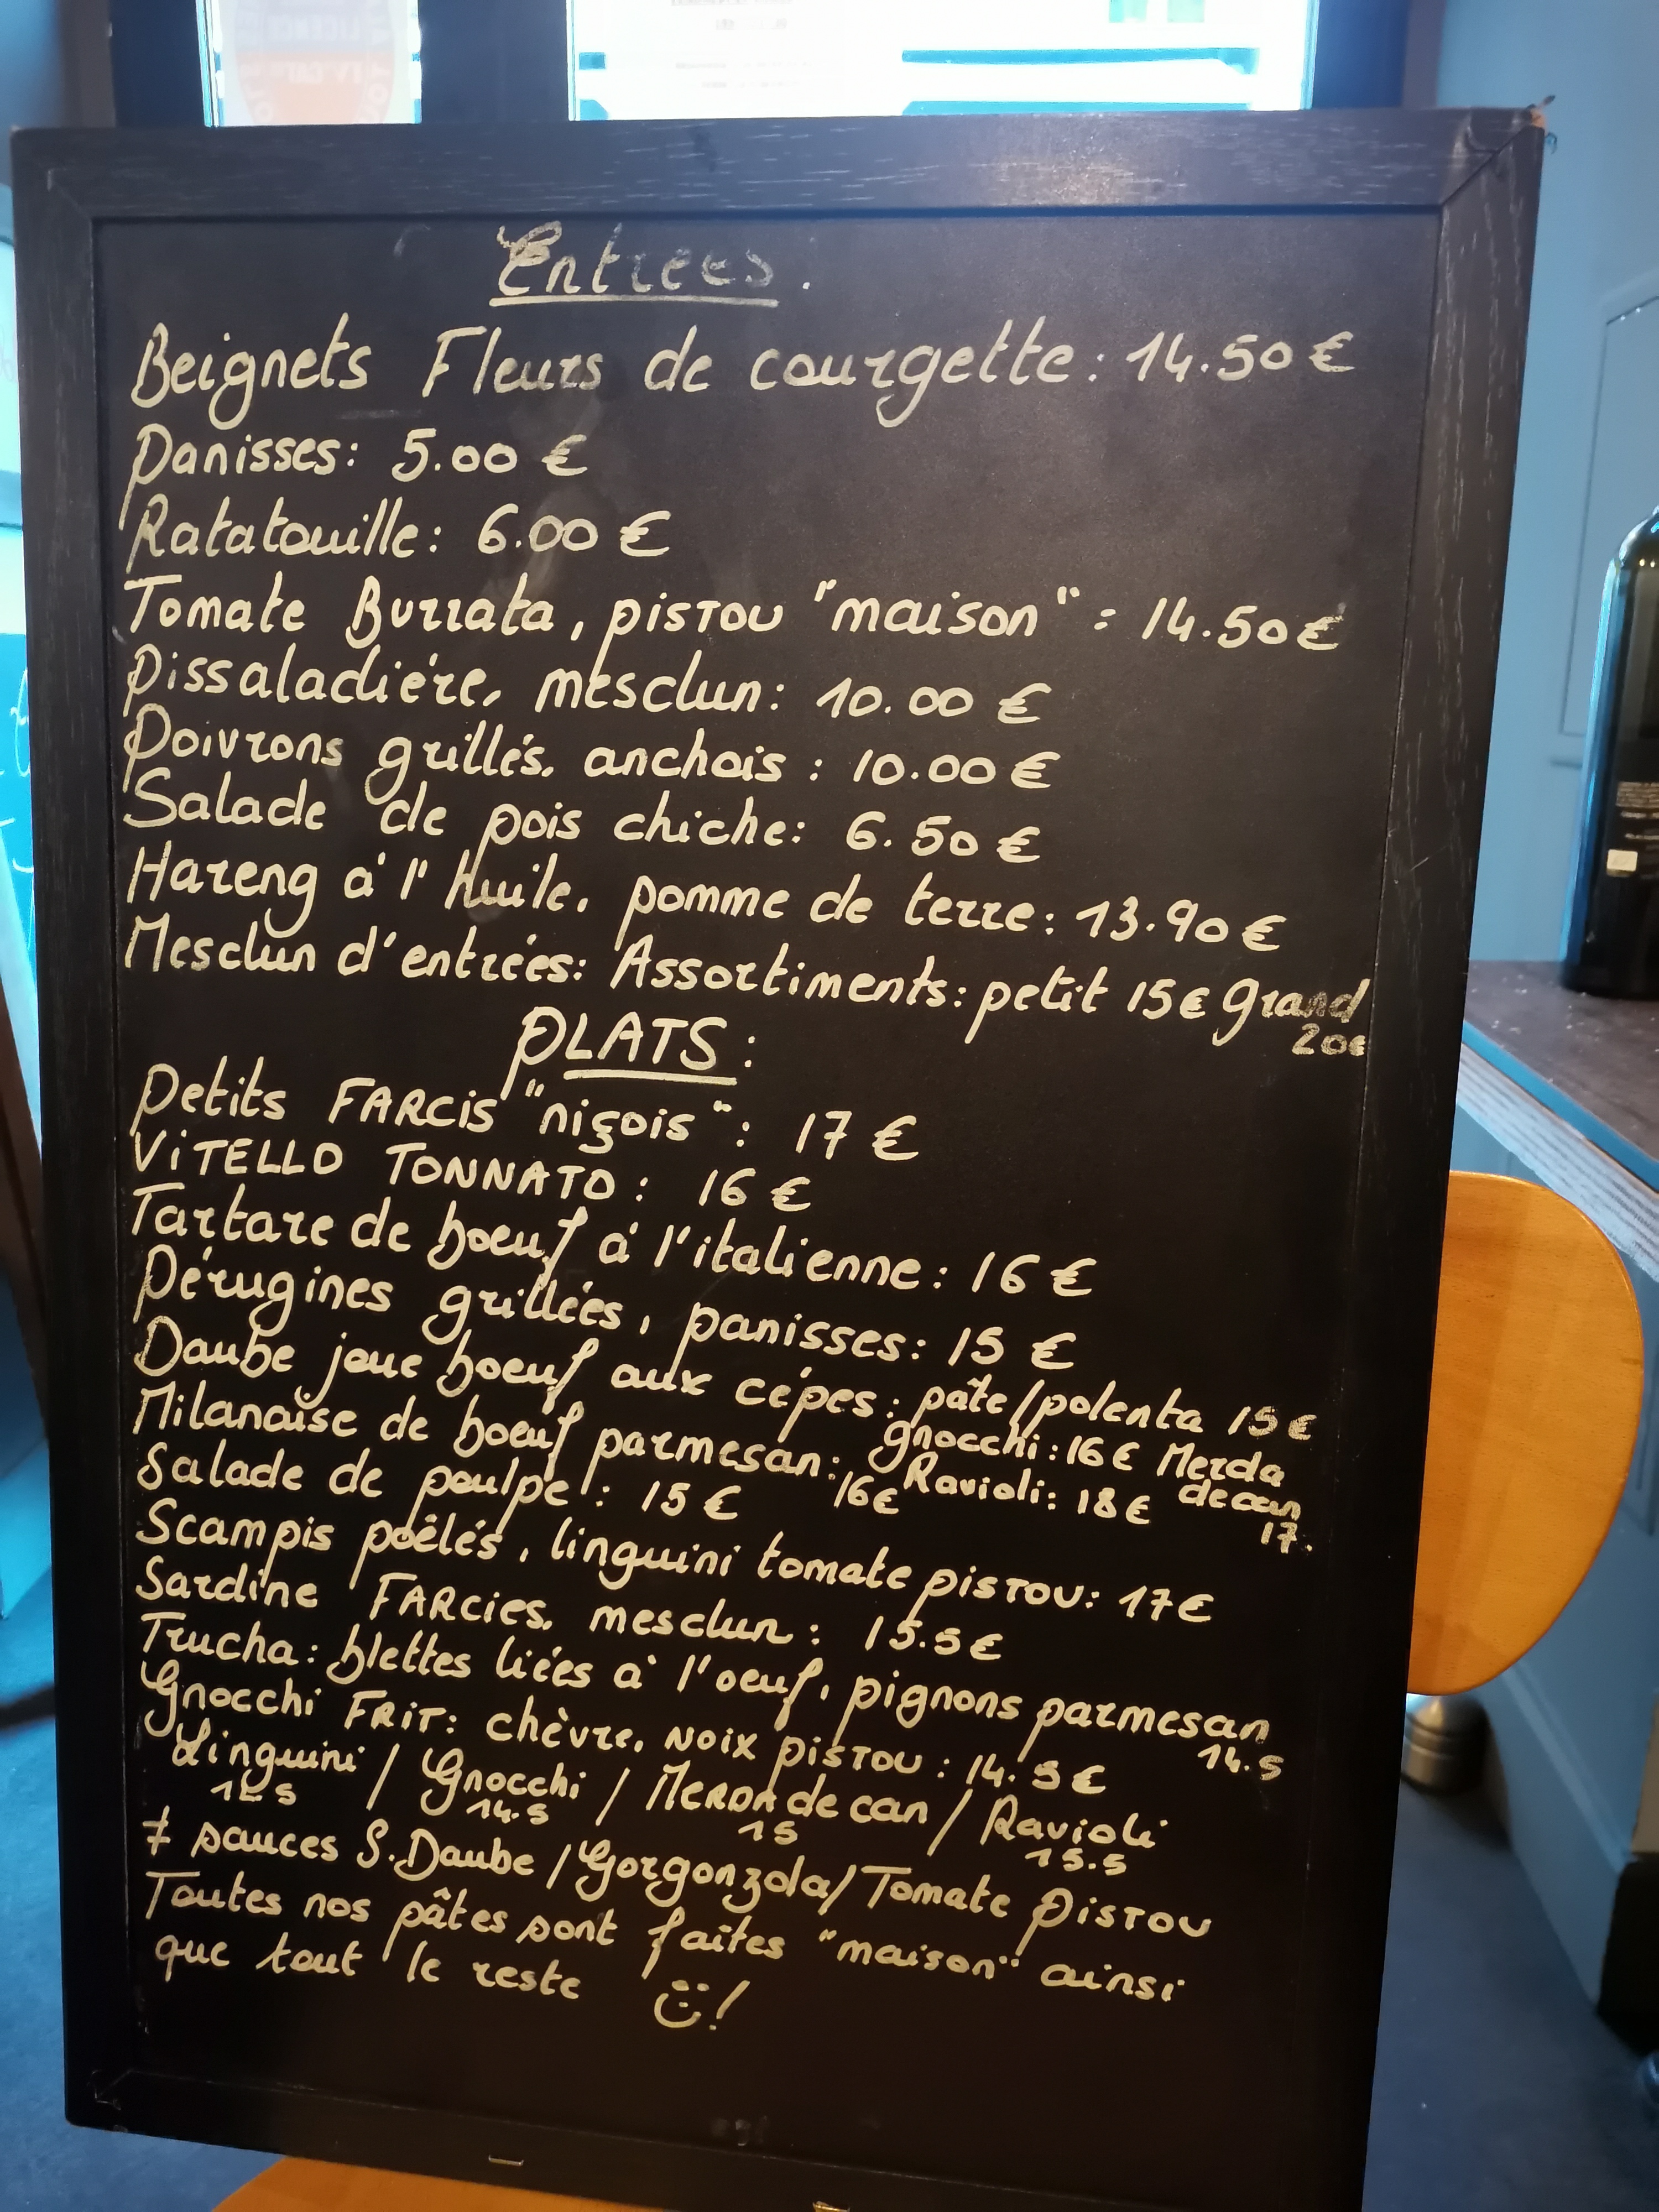 Entrées.
Beignets Fleurs de courgette: 14.50€
Panisses: 5.00 €
Ratatouille: 6.00 €
Tomate Burrata, pistou "maison" : 14.50€
Pissaladiére, mesclun: 10.00 €
Poivrons grillés, anchois : 10.00 €
Salade de pois chiche: 6.50 €
Hareng à l'huile, pomme de terre: 13.90€
Mesclun d'entrées: Assortiments: petit 15€ grand
20€
PLATS :
Petits FARCIS "niçois" : 17 €
ViTELLO TONNATO : 16 €
Tartare de boeuf à l'italienne: 16 €
Pérugines grillées, panisses: 15 €
Daube joue boeuf aux cépes: pâte/polenta 15€
gnocchi: 16€ Merda
Milanaise de boeuf parmesan: 16€ Ravioli: 18€ de can
17.
Salade de poulpe : 15 €
Scampis poêlés, linguini tomate pistou: 17€
Sardine FARcies, mesclun : 15.5€
Trucha: blettes liées à l'oeuf, pignons parmesan
14.5
Gnocchi FRIT: chèvre, NOIX PISTOU : 14.5€
Linguini / Gnocchi / MERDA de can / Ravioli
14.5 15 15.5
≠ sauces S.Daube / Gorgonzola / Tomate Pistou
Toutes nos pâtes sont faîtes "maison" ainsi
que tout le reste !
LICENCE